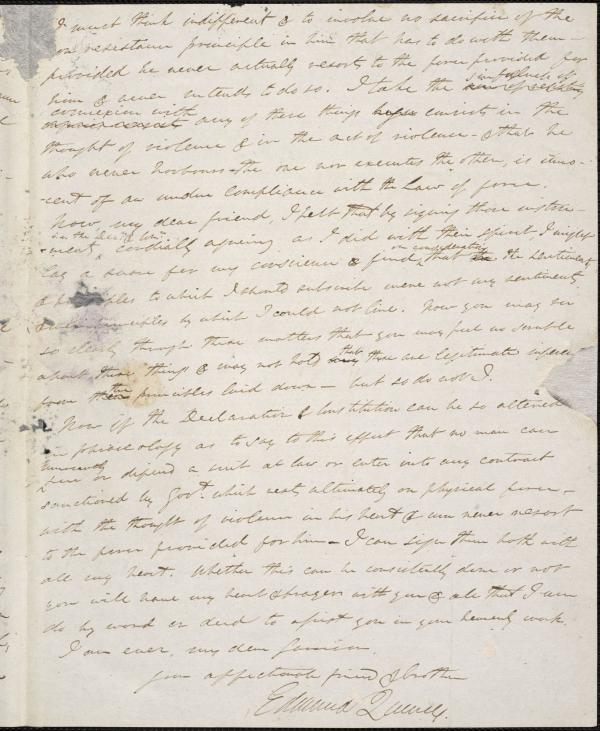 I must think indifferent & to involve no sacrifice of the
non resistance principle in him that has to do with them —
provided he never actually resorts to the force provided for
him & never intends to do so. I take the sinfulness of
connexion with any of these things consists in the
thought of violence & in the act of violence & that he
who never harbours the one nor executes the other, is inno-
cent of an undue compliance with the Law of force.
Now, my dear friend, I felt that by signing those instru-
ments, cordially agreeing as I did with their spirit I might
lay a snare for my conscience & find on consideration that the sentiments
& principles to which I should subscribe were not my sentiments
principles by which I could not live. Now you may see
so clearly through these matters that you may feel no scruple
about these things & may not hold that these are legitimate inferen
from the principles laid down — but so do not I.
Now if the Declaration & Constitution can be so altered
in phraseology as to say to this effect that no man can
innocently sue or defend a suit at law or enter into any contract
sanctioned by Govt. which rests ultimately on physical force —
with the thought of violence in his heart & can never resort
to the force provided for him — I can sign them both with
all my heart. Whether this can be consistently done or not
you will have my heart & prayers with you & all that I can
do by word or deed to assist you in your heavenly work.
I am ever, my dear Garrison
your affectionate friend & brother
Edmund Quincy.